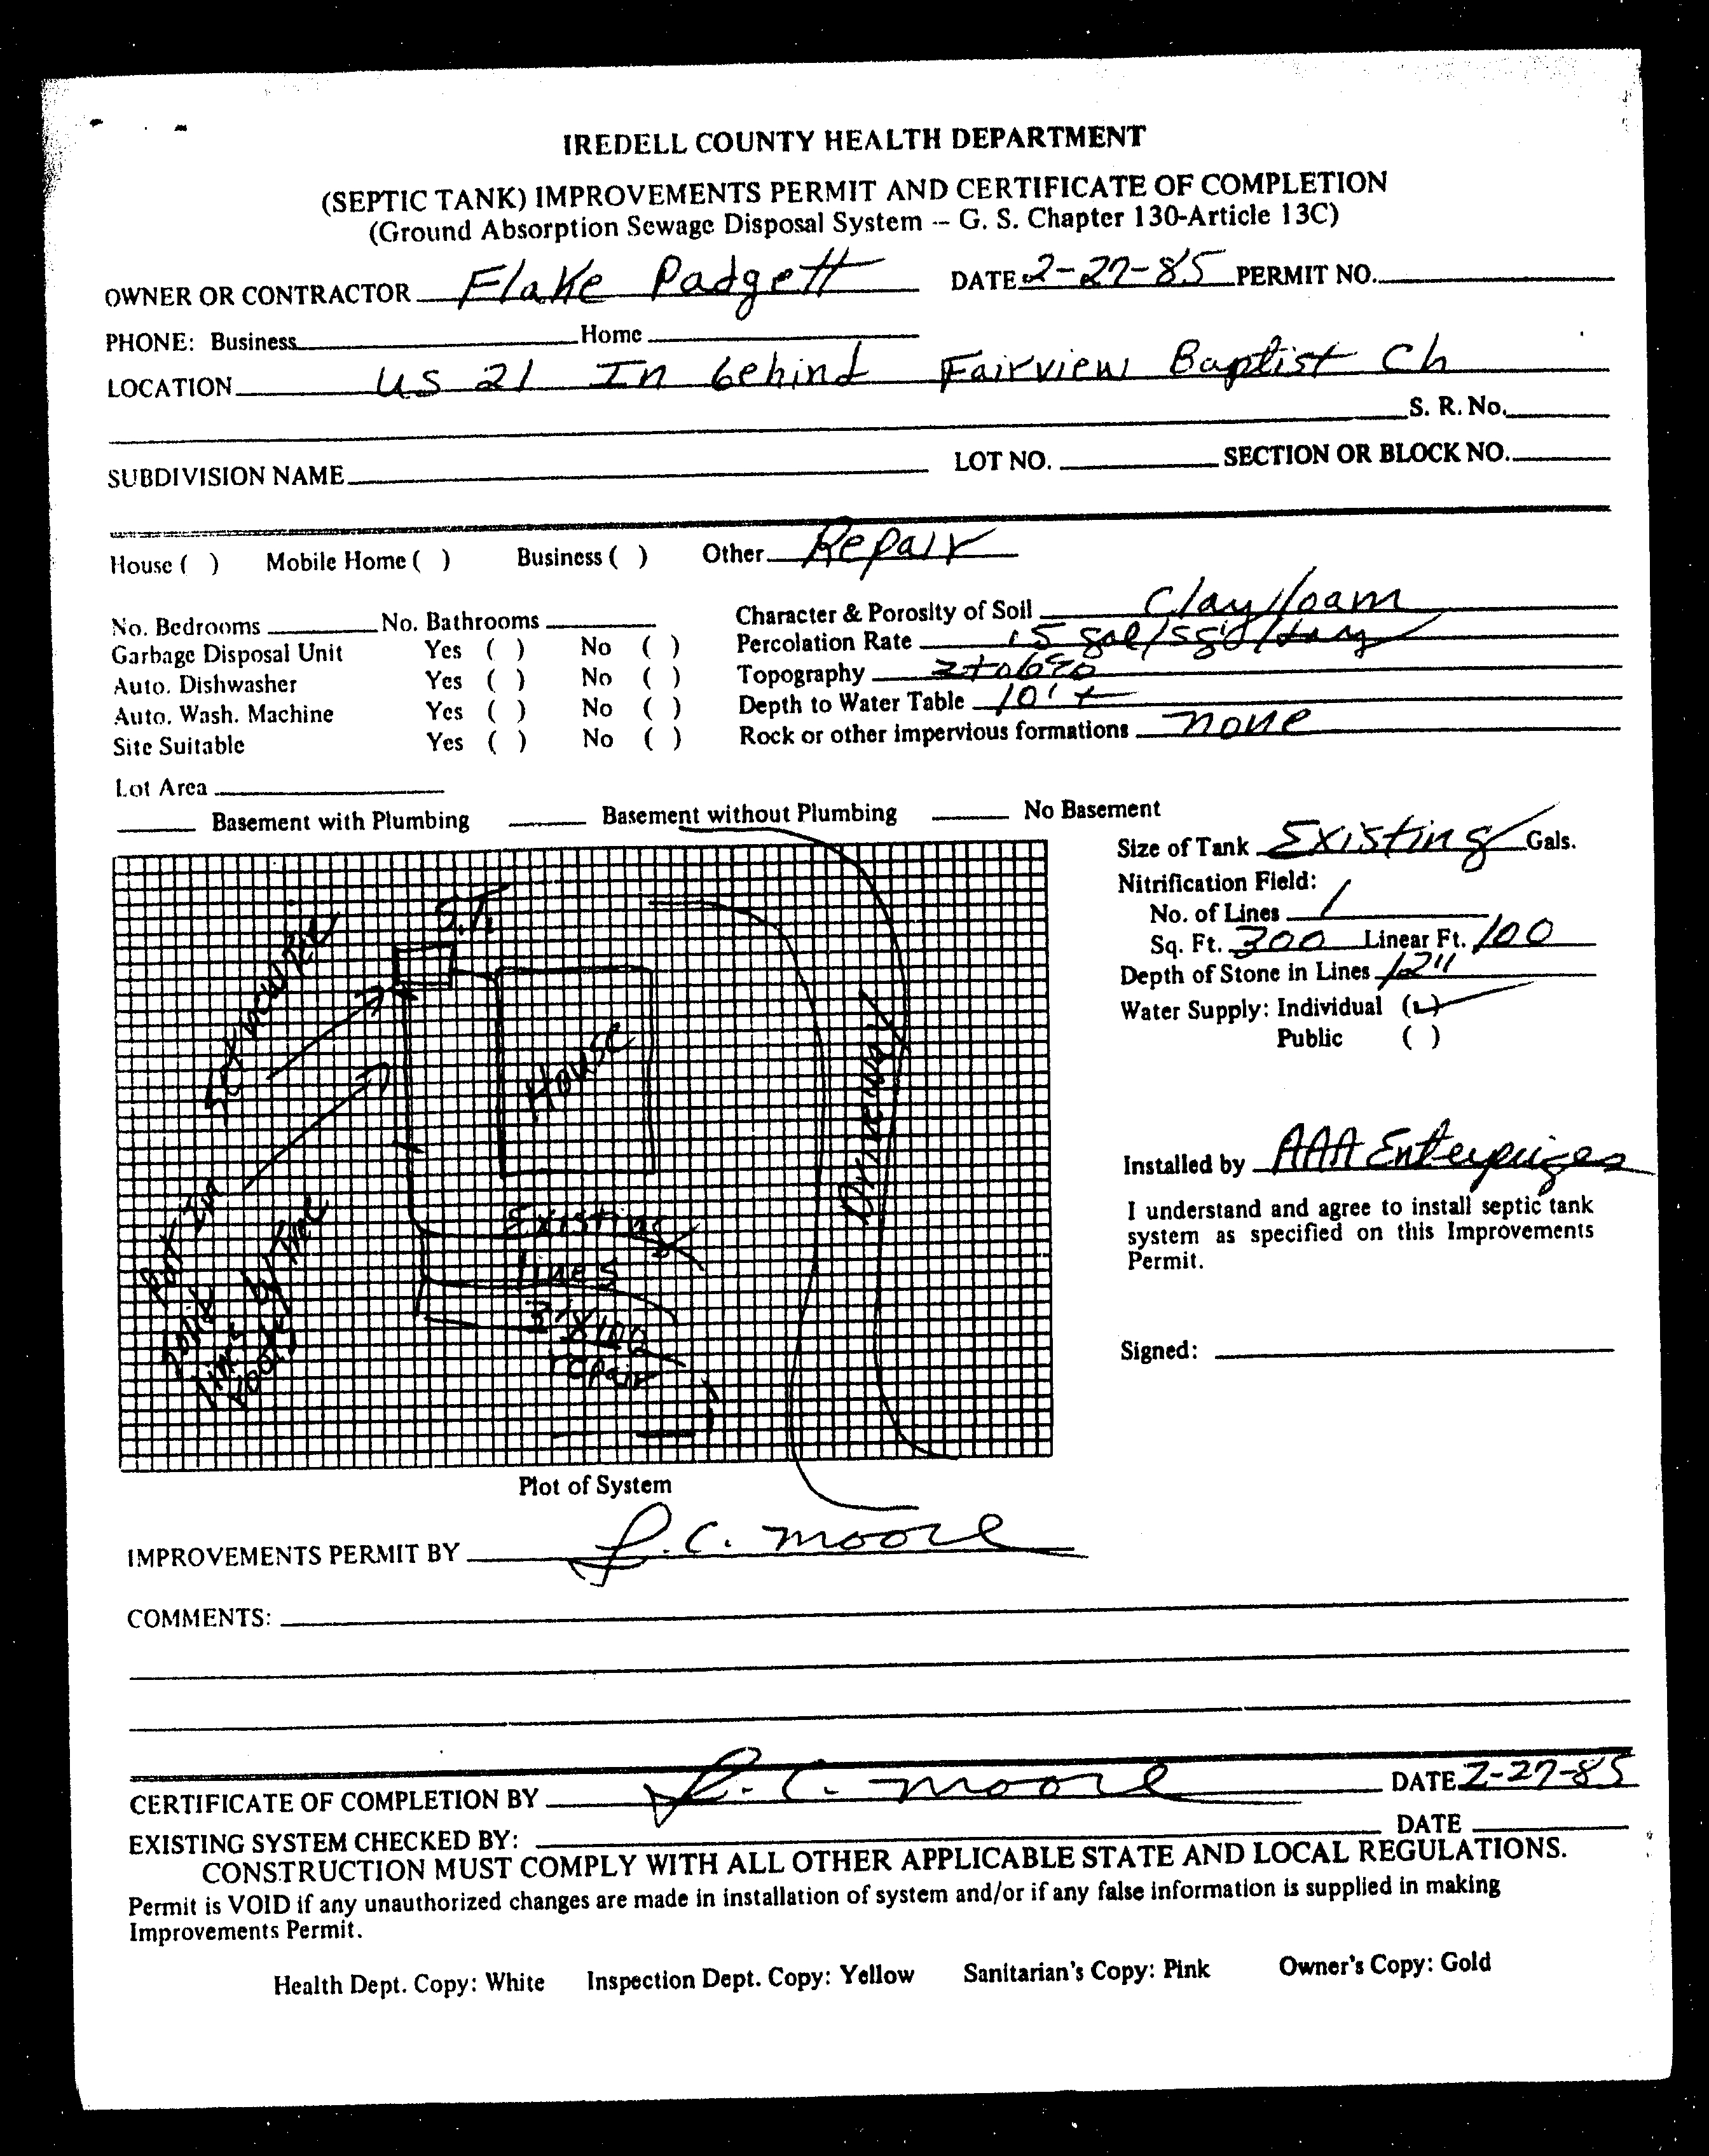 IREDELL COUNTY HEALTH DEPARTMENT
(SEPTIC TANK) IMPROVEMENTS PERMIT AND CERTIFICATE OF COMPLETION
(Ground Absorption Sewage Disposal System -- G. S. Chapter 130-Article 13C)
OWNER OR CONTRACTOR Flake Padgett DATE 2-27-85 PERMIT NO.
PHONE: Business Home
LOCATION US 21 In behind Fairview Baptist Ch
S. R. No.
SUBDIVISION NAME LOT NO. SECTION OR BLOCK NO.
House ( ) Mobile Home ( ) Business ( ) Other Repair
No. Bedrooms No. Bathrooms Character & Porosity of Soil Clay loam
Garbage Disposal Unit Yes ( ) No ( ) Percolation Rate .5 gal/sqft/day
Auto. Dishwasher Yes ( ) No ( ) Topography 2 to 6%
Auto. Wash. Machine Yes ( ) No ( ) Depth to Water Table 10'+
Site Suitable Yes ( ) No ( ) Rock or other impervious formations none
Lot Area
Basement with Plumbing Basement without Plumbing No Basement
Size of Tank Existing Gals.
Nitrification Field:
No. of Lines 1
Sq. Ft. 300 Linear Ft. 100
Depth of Stone in Lines 12"
Water Supply: Individual (✓)
Public ( )
Installed by AAA Enterprizes
I understand and agree to install septic tank
system as specified on this Improvements
Permit.
Signed:
S.T.
House
Driveway
Existing
lines
3'X100
repair
Put In
Solid
line
by Tree
Roots
Plot of System
IMPROVEMENTS PERMIT BY L.C. Moore
COMMENTS:
CERTIFICATE OF COMPLETION BY L.C. Moore DATE 2-27-85
EXISTING SYSTEM CHECKED BY: DATE
CONSTRUCTION MUST COMPLY WITH ALL OTHER APPLICABLE STATE AND LOCAL REGULATIONS.
Permit is VOID if any unauthorized changes are made in installation of system and/or if any false information is supplied in making
Improvements Permit.
Health Dept. Copy: White Inspection Dept. Copy: Yellow Sanitarian's Copy: Pink Owner's Copy: Gold